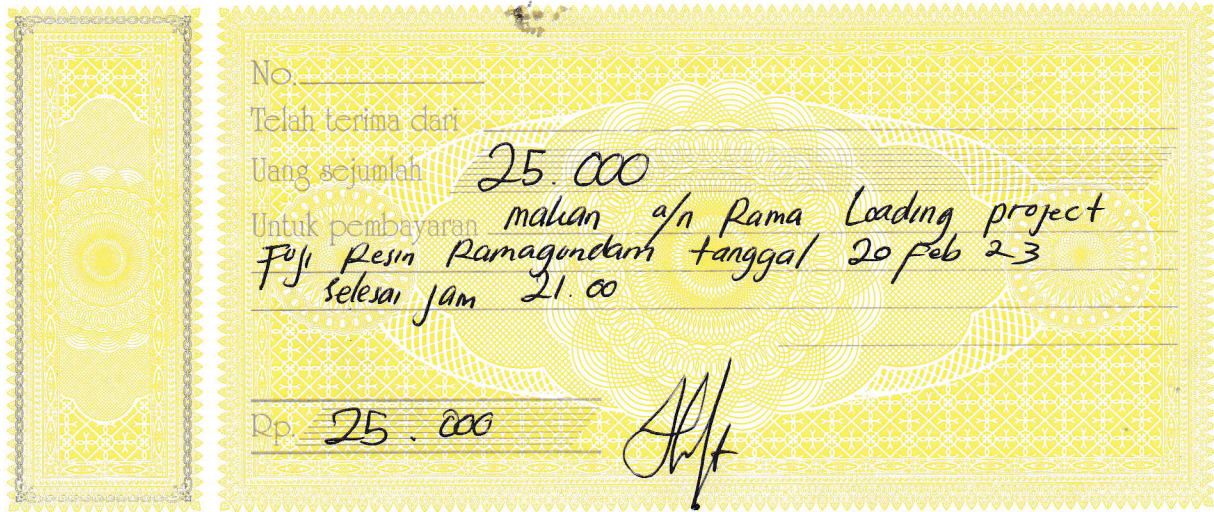 No.
Telah terima dari
Uang sejumlah 25.000
Untuk pembayaran makan a/n Rama Loading project
Fuji Resin Ramagundam tanggal 20 Feb 23
selesai jam 21.00
Rp. 25.000